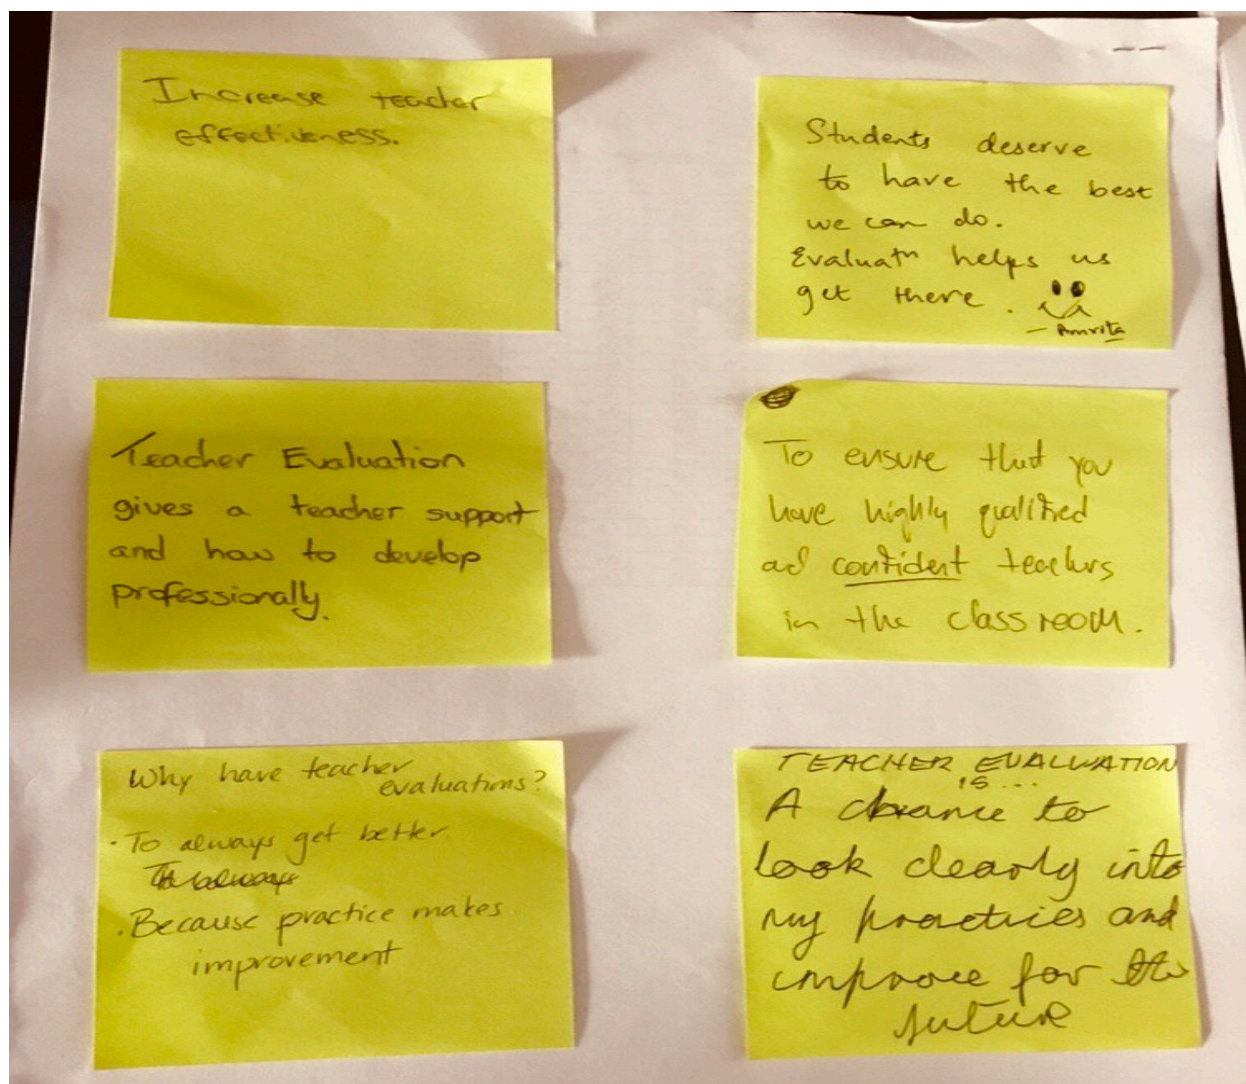 Increase teacher
effectiveness.
Students deserve
to have the best
we can do.
Evaluatn helps us
get there.
– Amrita
Teacher Evaluation
gives a teacher support
and how to develop
professionally.
To ensure that you
have highly qualified
ad confident teachers
in the classroom.
Why have teacher
evaluations?
· To always get better.
To always
· Because practice makes
improvement
TEACHER EVALUATION
IS...
A chance to
look clearly into
my practices and
improve for the
future